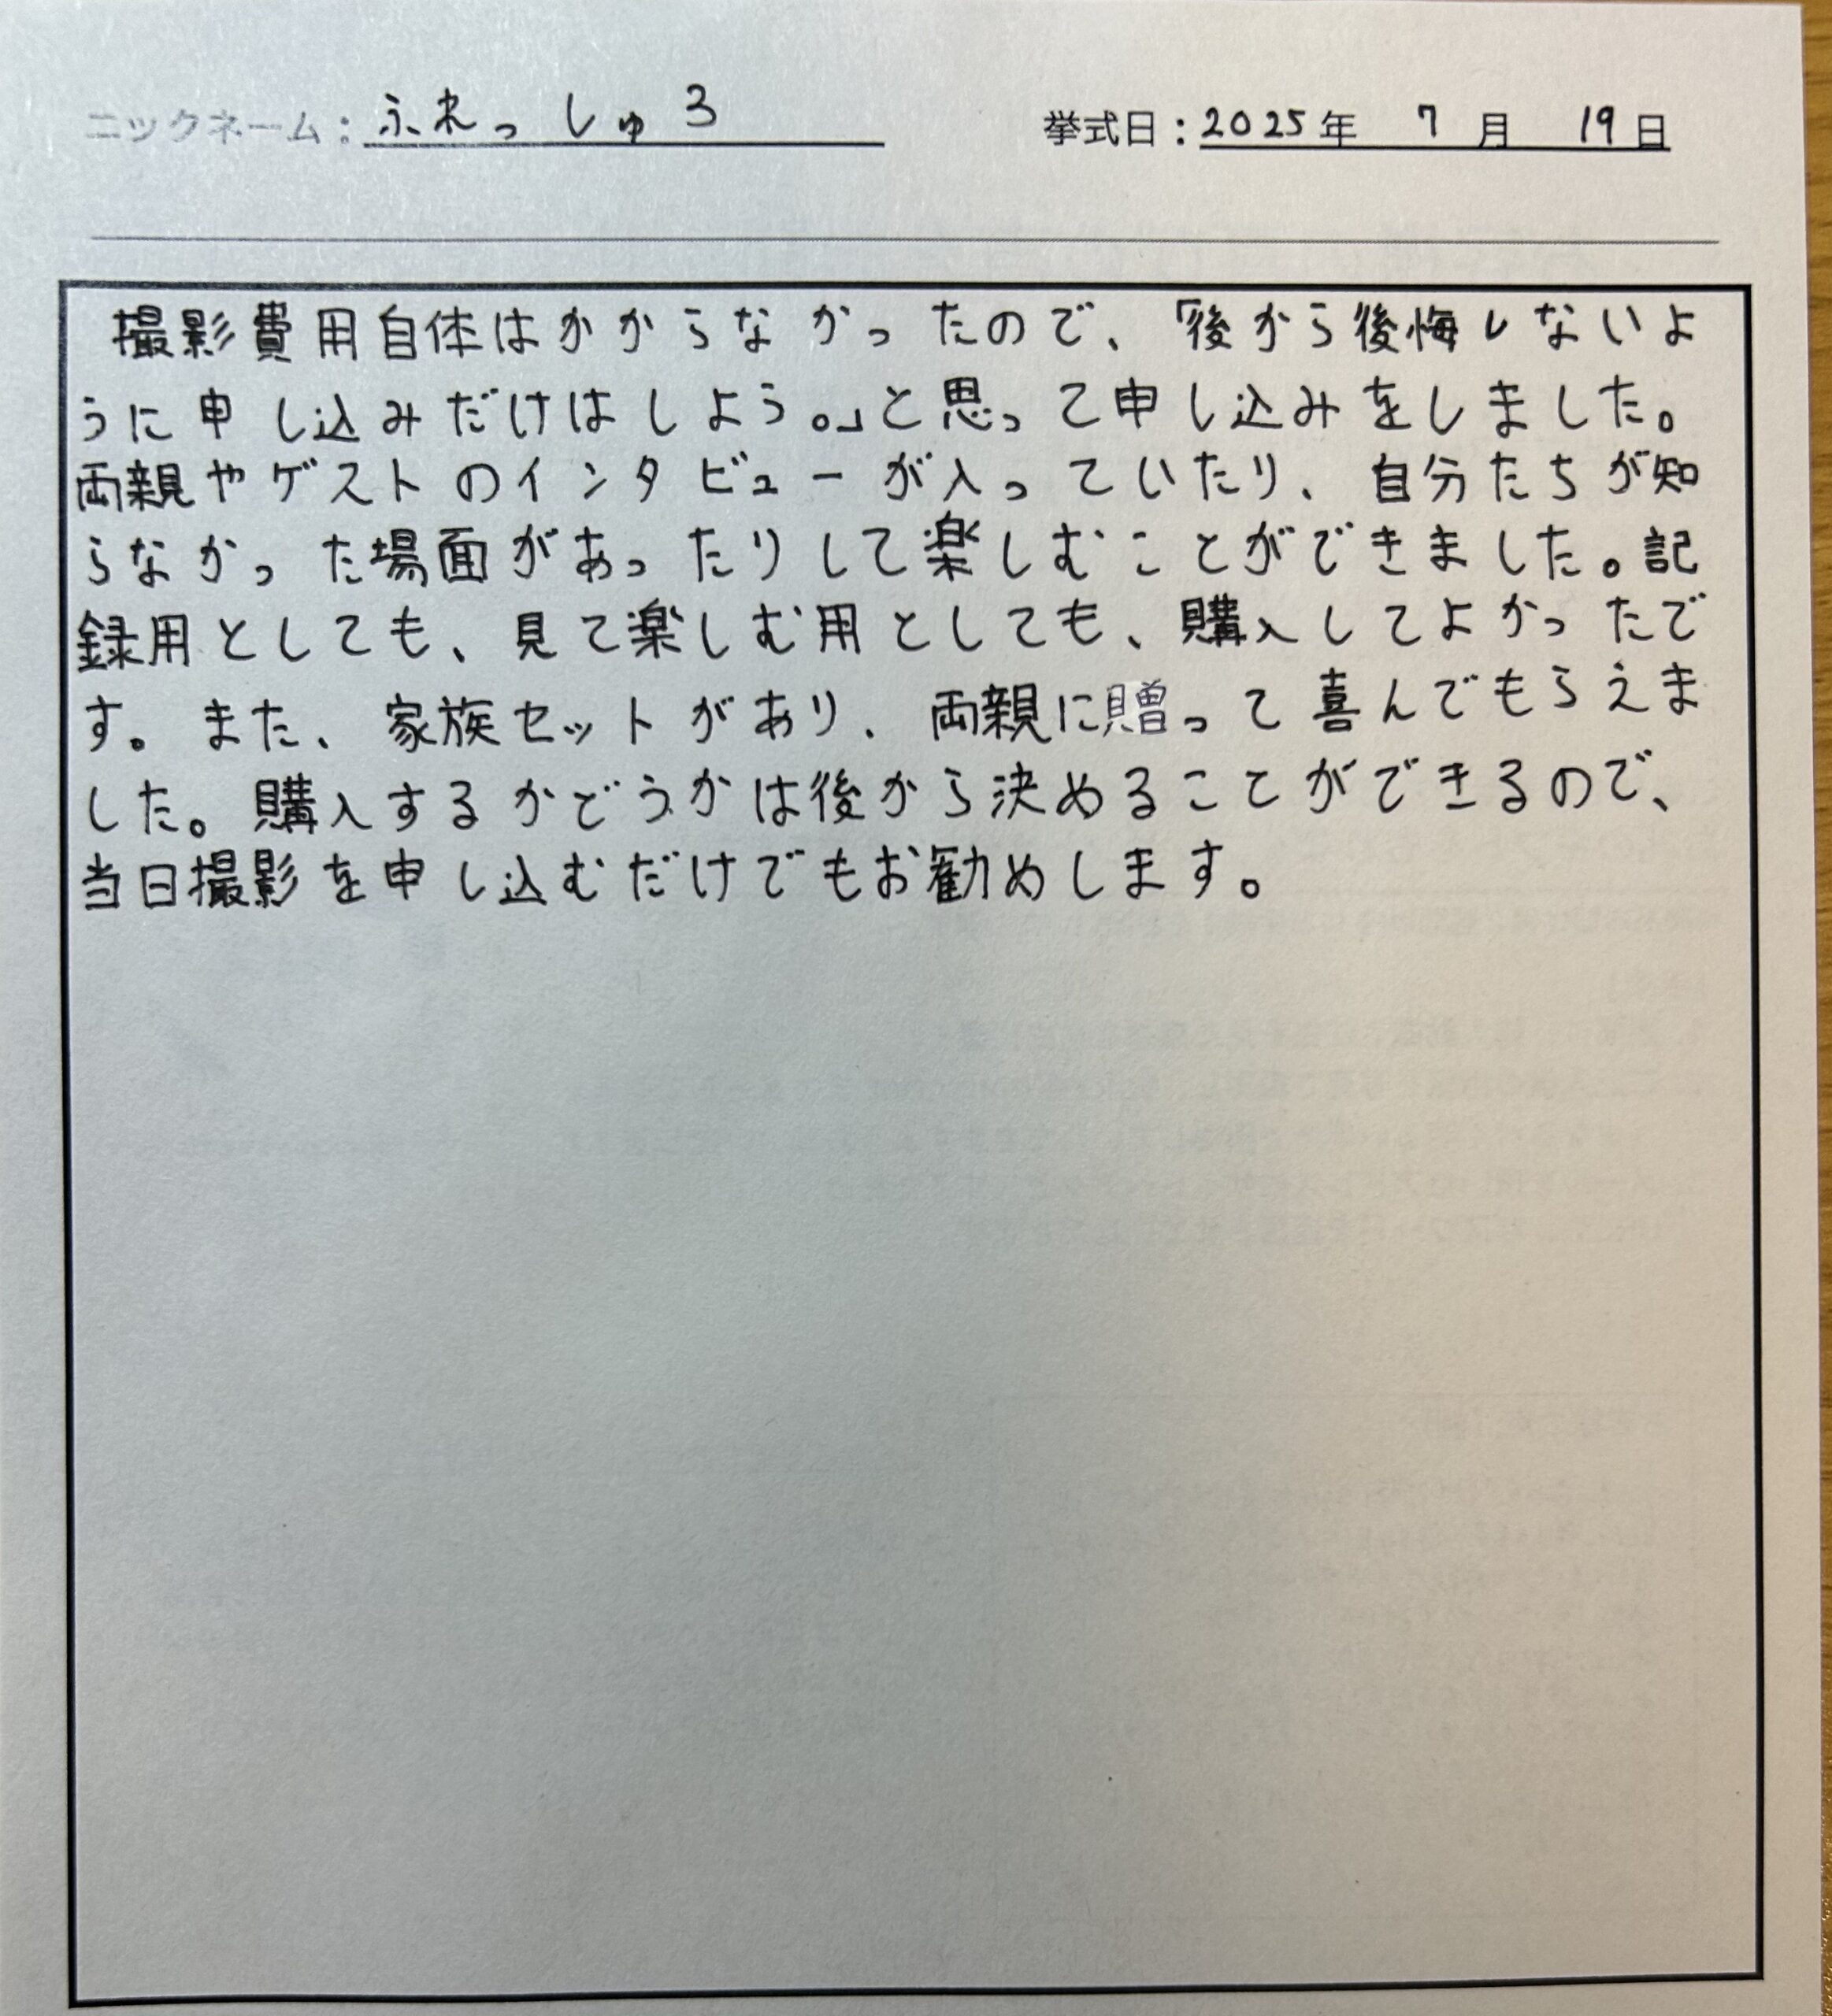 ニックネーム：ふれっしゅ3
挙式日：2025年 7月 19日
撮影費用自体はかからなかったので、「後から後悔しないよ
うに申し込みだけはしよう。」と思って申し込みをしました。
両親やゲストのインタビューが入っていたり、自分たちが知
らなかった場面があったりして楽しむことができました。記
録用としても、見て楽しむ用としても、購入してよかったで
す。また、家族セットがあり、両親に贈って喜んでもらえま
した。購入するかどうかは後から決めることができるので、
当日撮影を申し込むだけでもお勧めします。